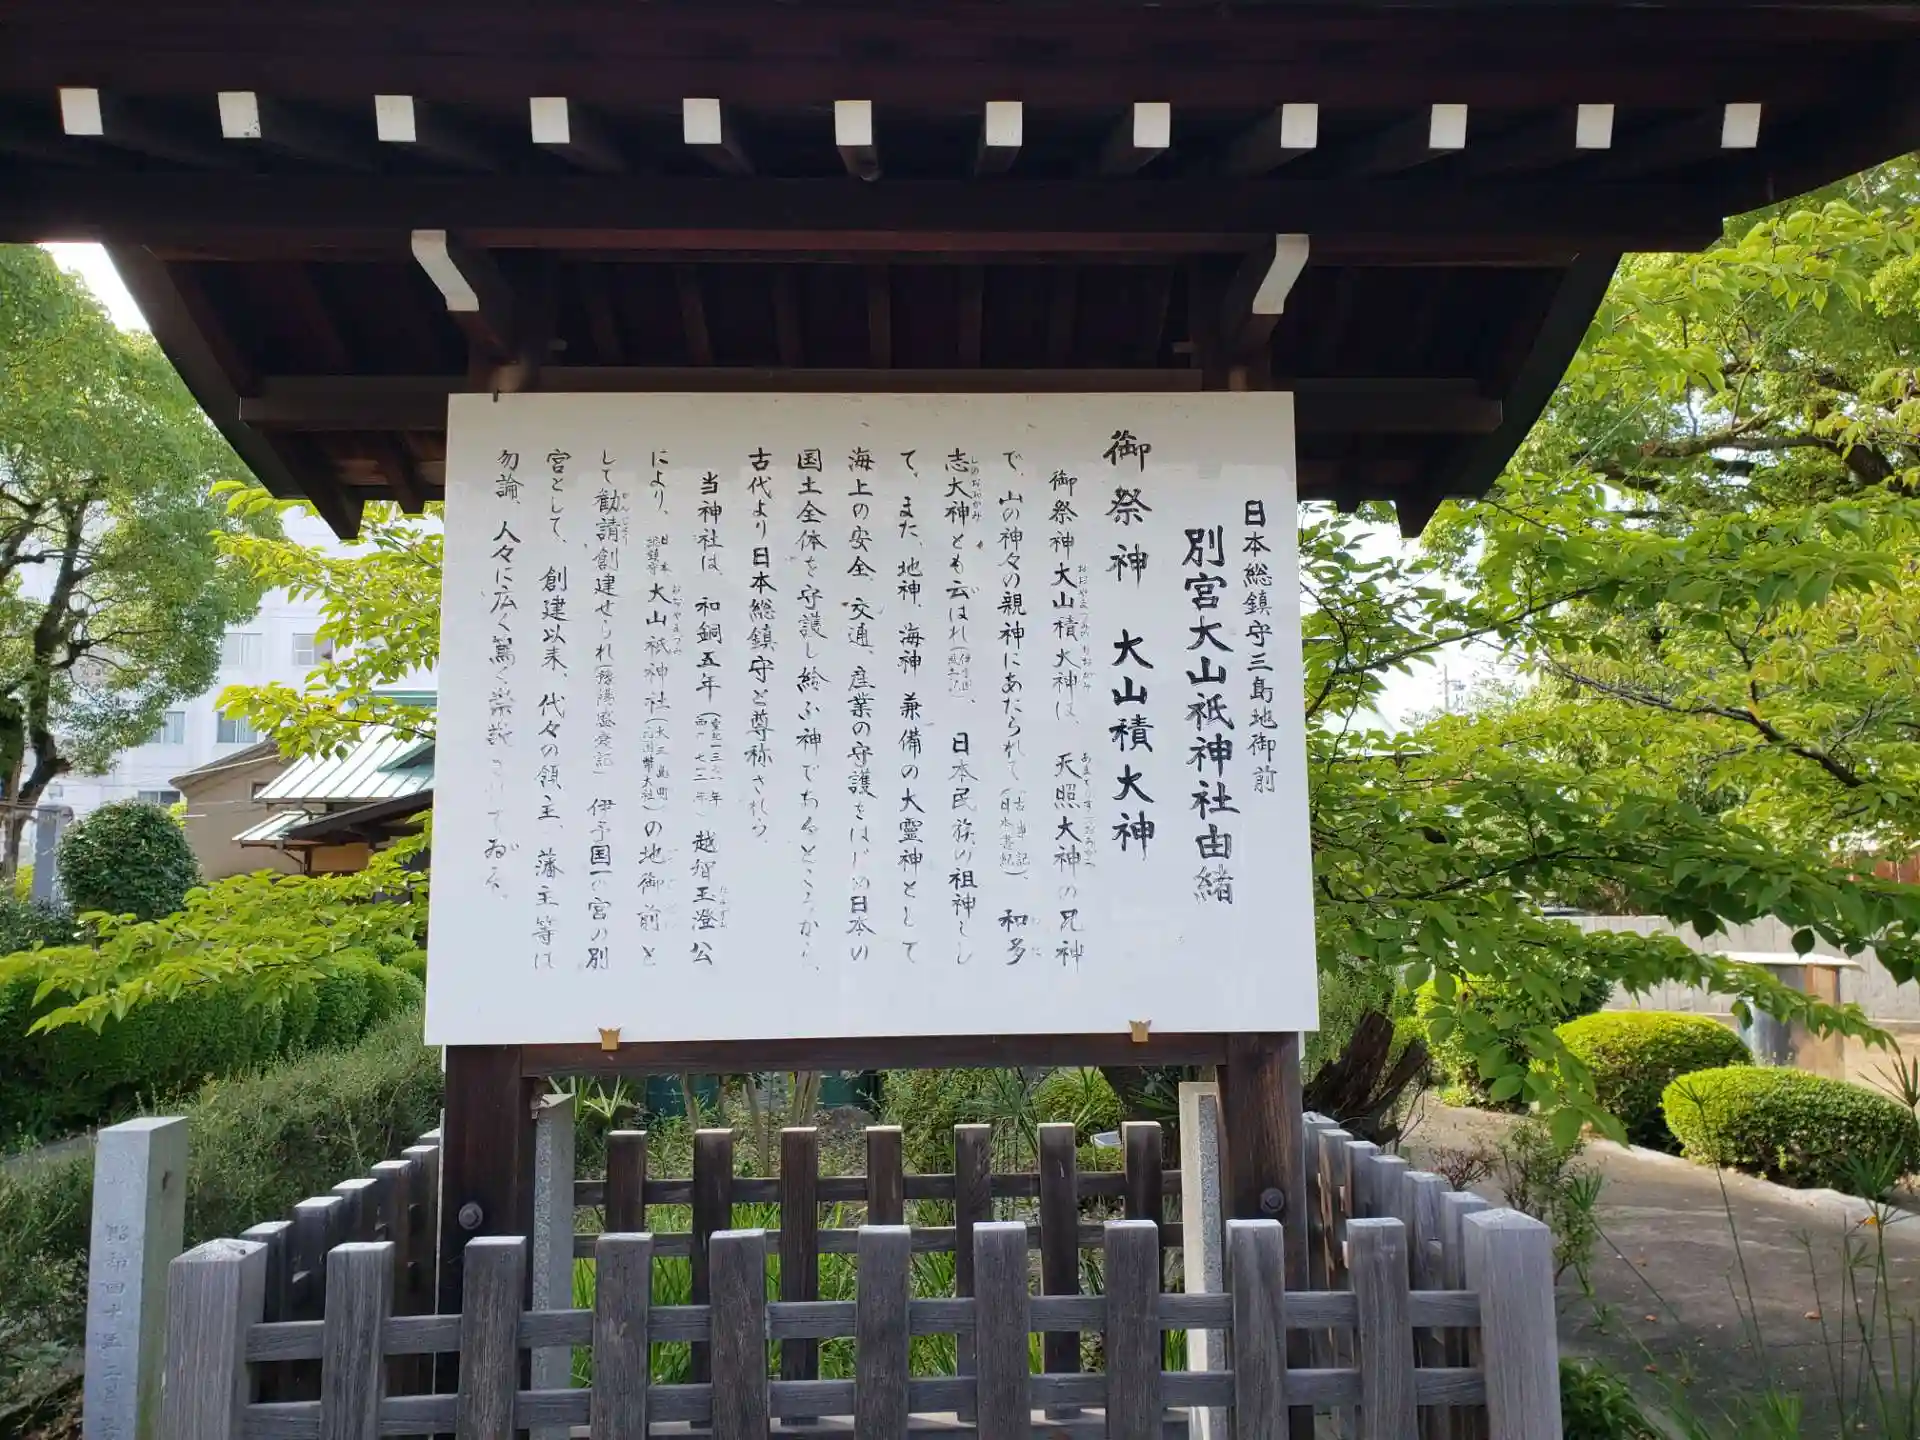 日本総鎮守三島地御前
別宮大山祇神社由緒
御祭神　大山積大神
御祭神大山積大神は、天照大神の兄神
で、山の神々の親神にあたられて（古事記 日本書紀）、和多
志大神とも云はれ（伊予国 風土記）、日本民族の祖神とし
て、また、地神、海神兼備の大霊神として
海上の安全、交通、産業の守護をはじめ日本の
国土全体を守護し給ふ神であるところから、
古代より日本総鎮守と尊称された。
当神社は、和銅五年（皇紀一三七二年 西暦七一二年）越智玉澄公
により、日本総鎮守大山祇神社（大三島町 元国幣大社）の地御前と
して勧請創建せられ（予陽盛衰記）伊予国一の宮の別
宮として、創建以来、代々の領主、藩主等は
勿論、人々に広く篤く崇敬されてゐる。
昭和四十五年